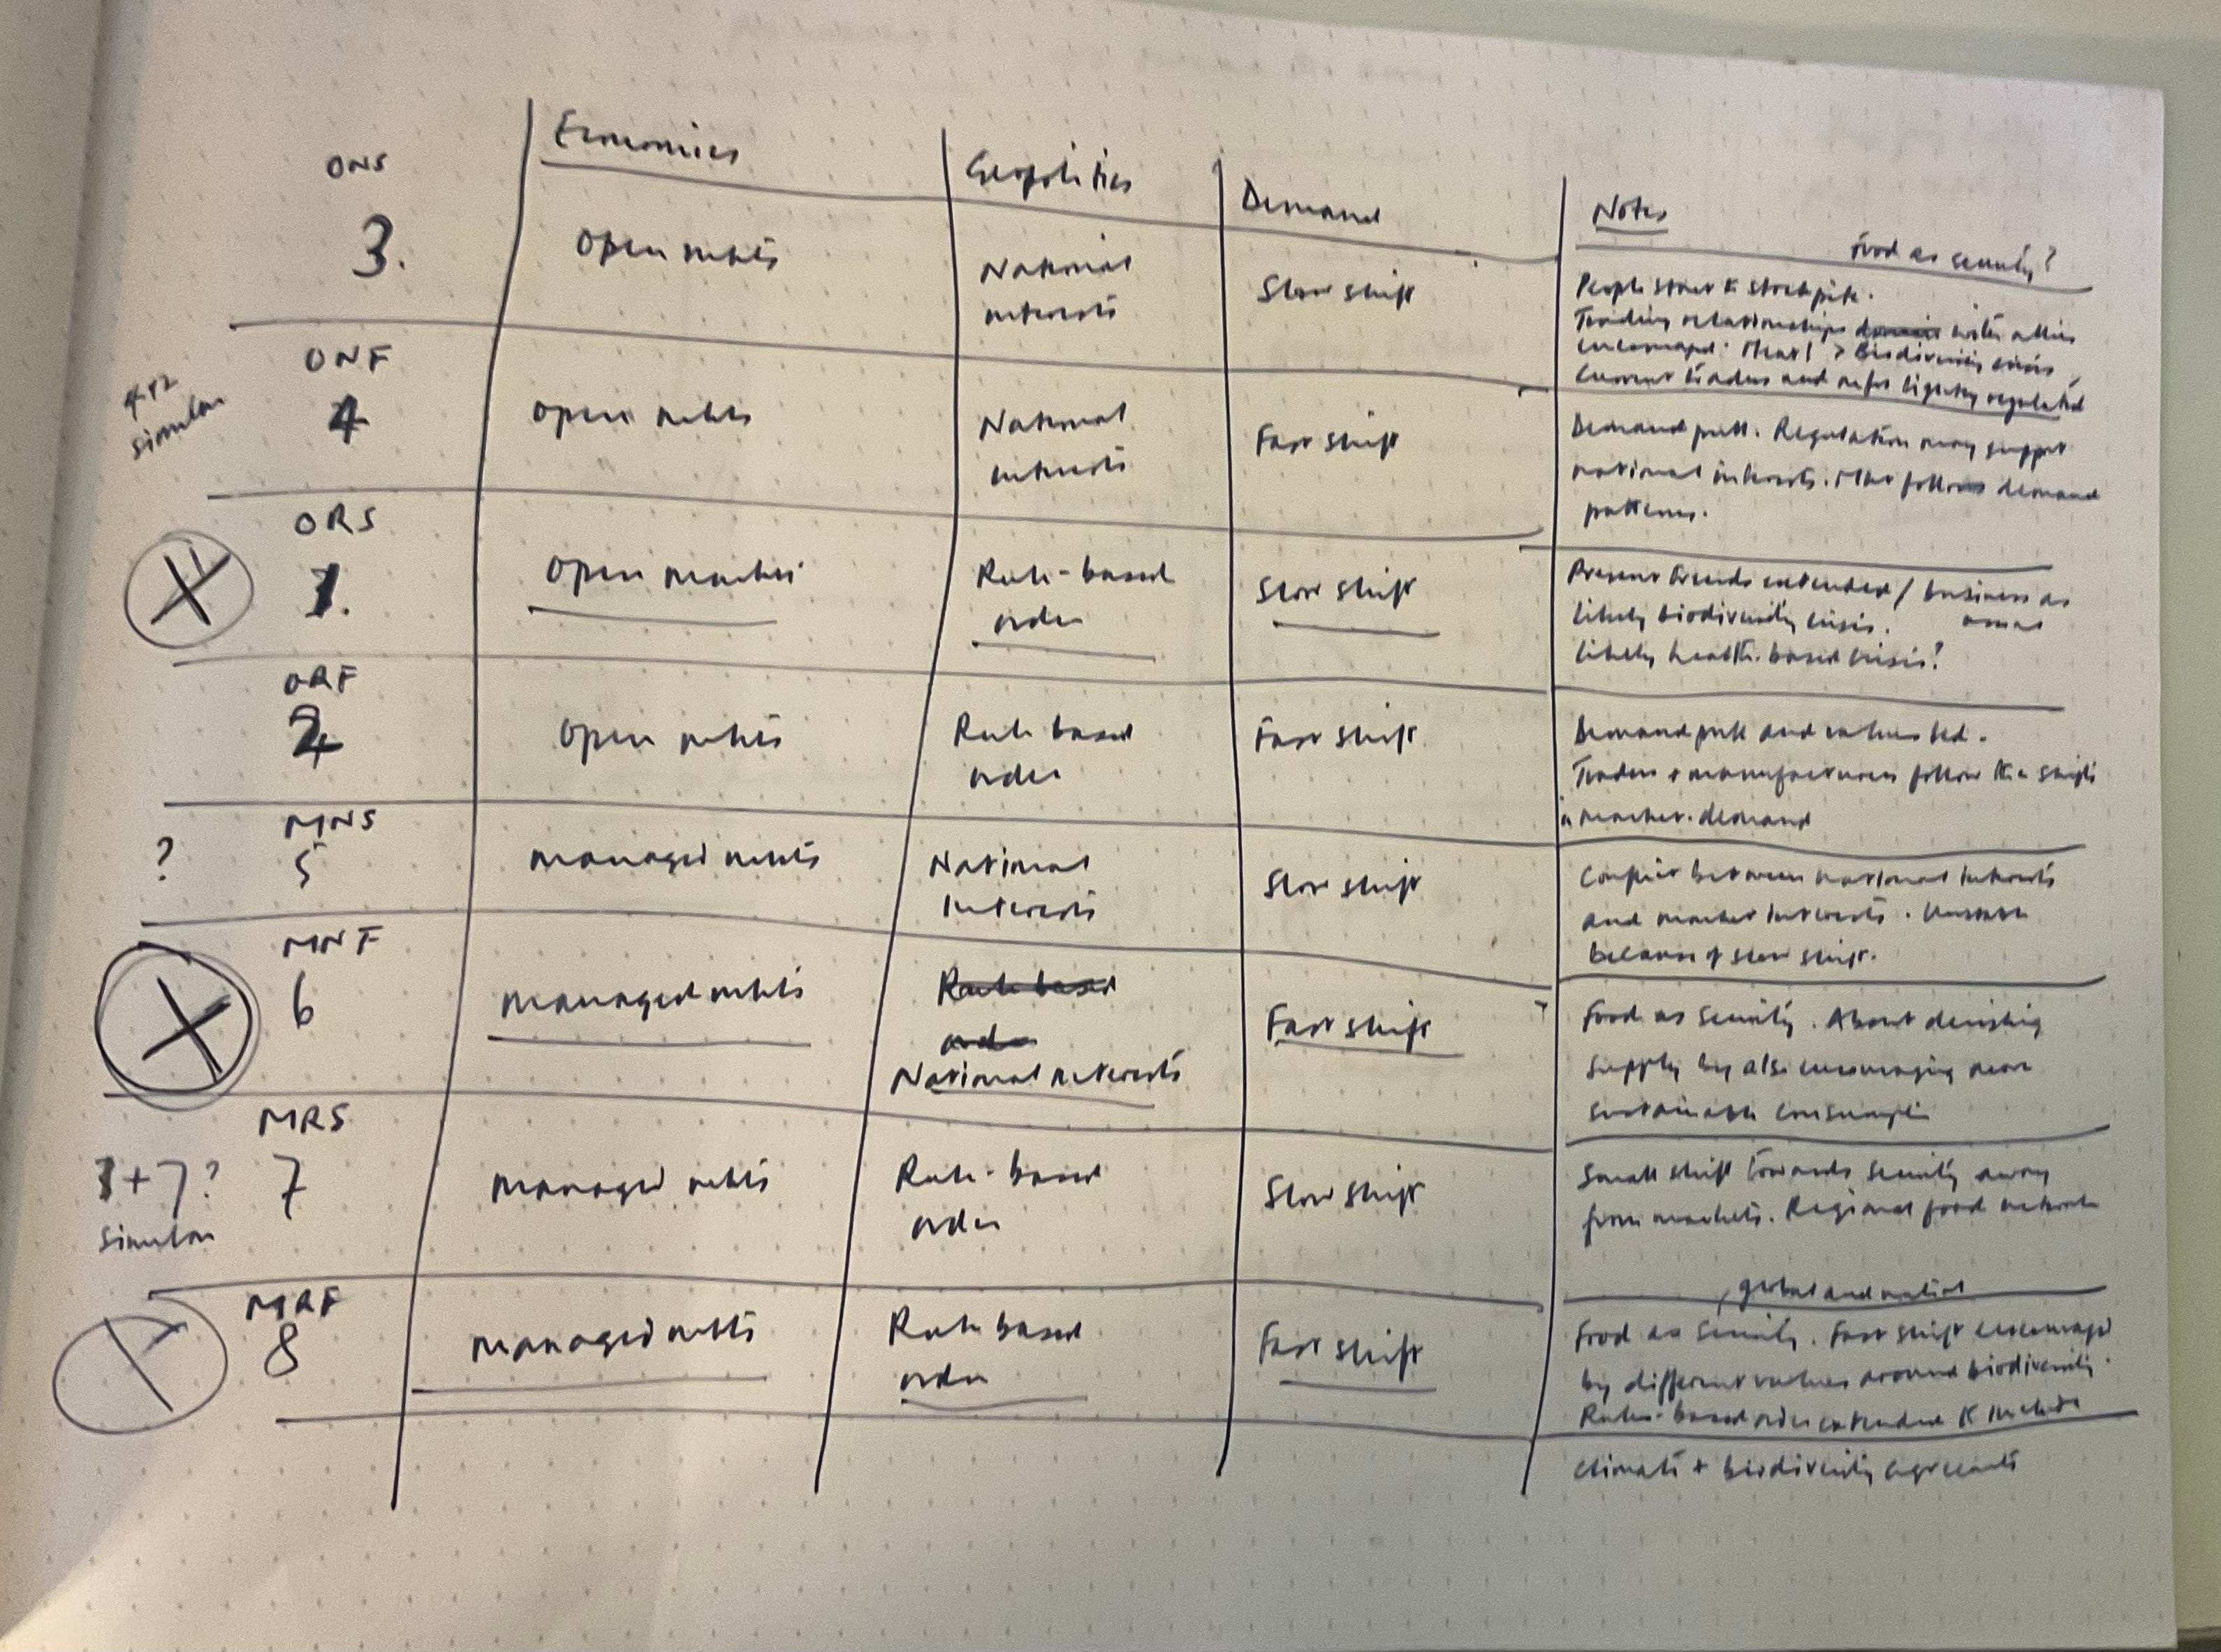 Economics
Geopolitics
Demand
Notes
ONS
3.
Open mkts
National
interests
Slow shift
Food as security?
People start to stockpile.
Trading relationships with allies
encouraged. Meat > Biodiversity crisis
Current traders and mfrs lightly regulated
4+2
similar
ONF
4
Open mkts
National
interests
Fast shift
Demand pull. Regulation may support
national interests. Mkt follows demand
patterns.
X
ORS
1.
Open markets
Rule-based
order
Slow shift
Present trends extended / business as
usual
likely biodiversity crisis.
likely health-based crisis?
ORF
2
Open mkts
Rule based
order
Fast shift
Demand pull and values led.
Traders + manufacturers follow the shifts
in market demand
?
MNS
5
managed mkts
National
Interests
Slow shift
Conflict between national interests
and market interests. Unstable
because of slow shift.
X
MNF
6
managed mkts
Rule based
order
National interests
Fast shift
Food as security. About derisking
supply by also encouraging more
sustainable consumption
1+7?
similar
MRS
7
managed mkts
Rule-based
order
Slow shift
Small shift towards security away
from markets. Regional food networks
MRF
8
managed mkts
Rule based
order
Fast shift
global and national
Food as security. Fast shift encouraged
by different values around biodiversity.
Rules-based order extended to include
climate + biodiversity agreements